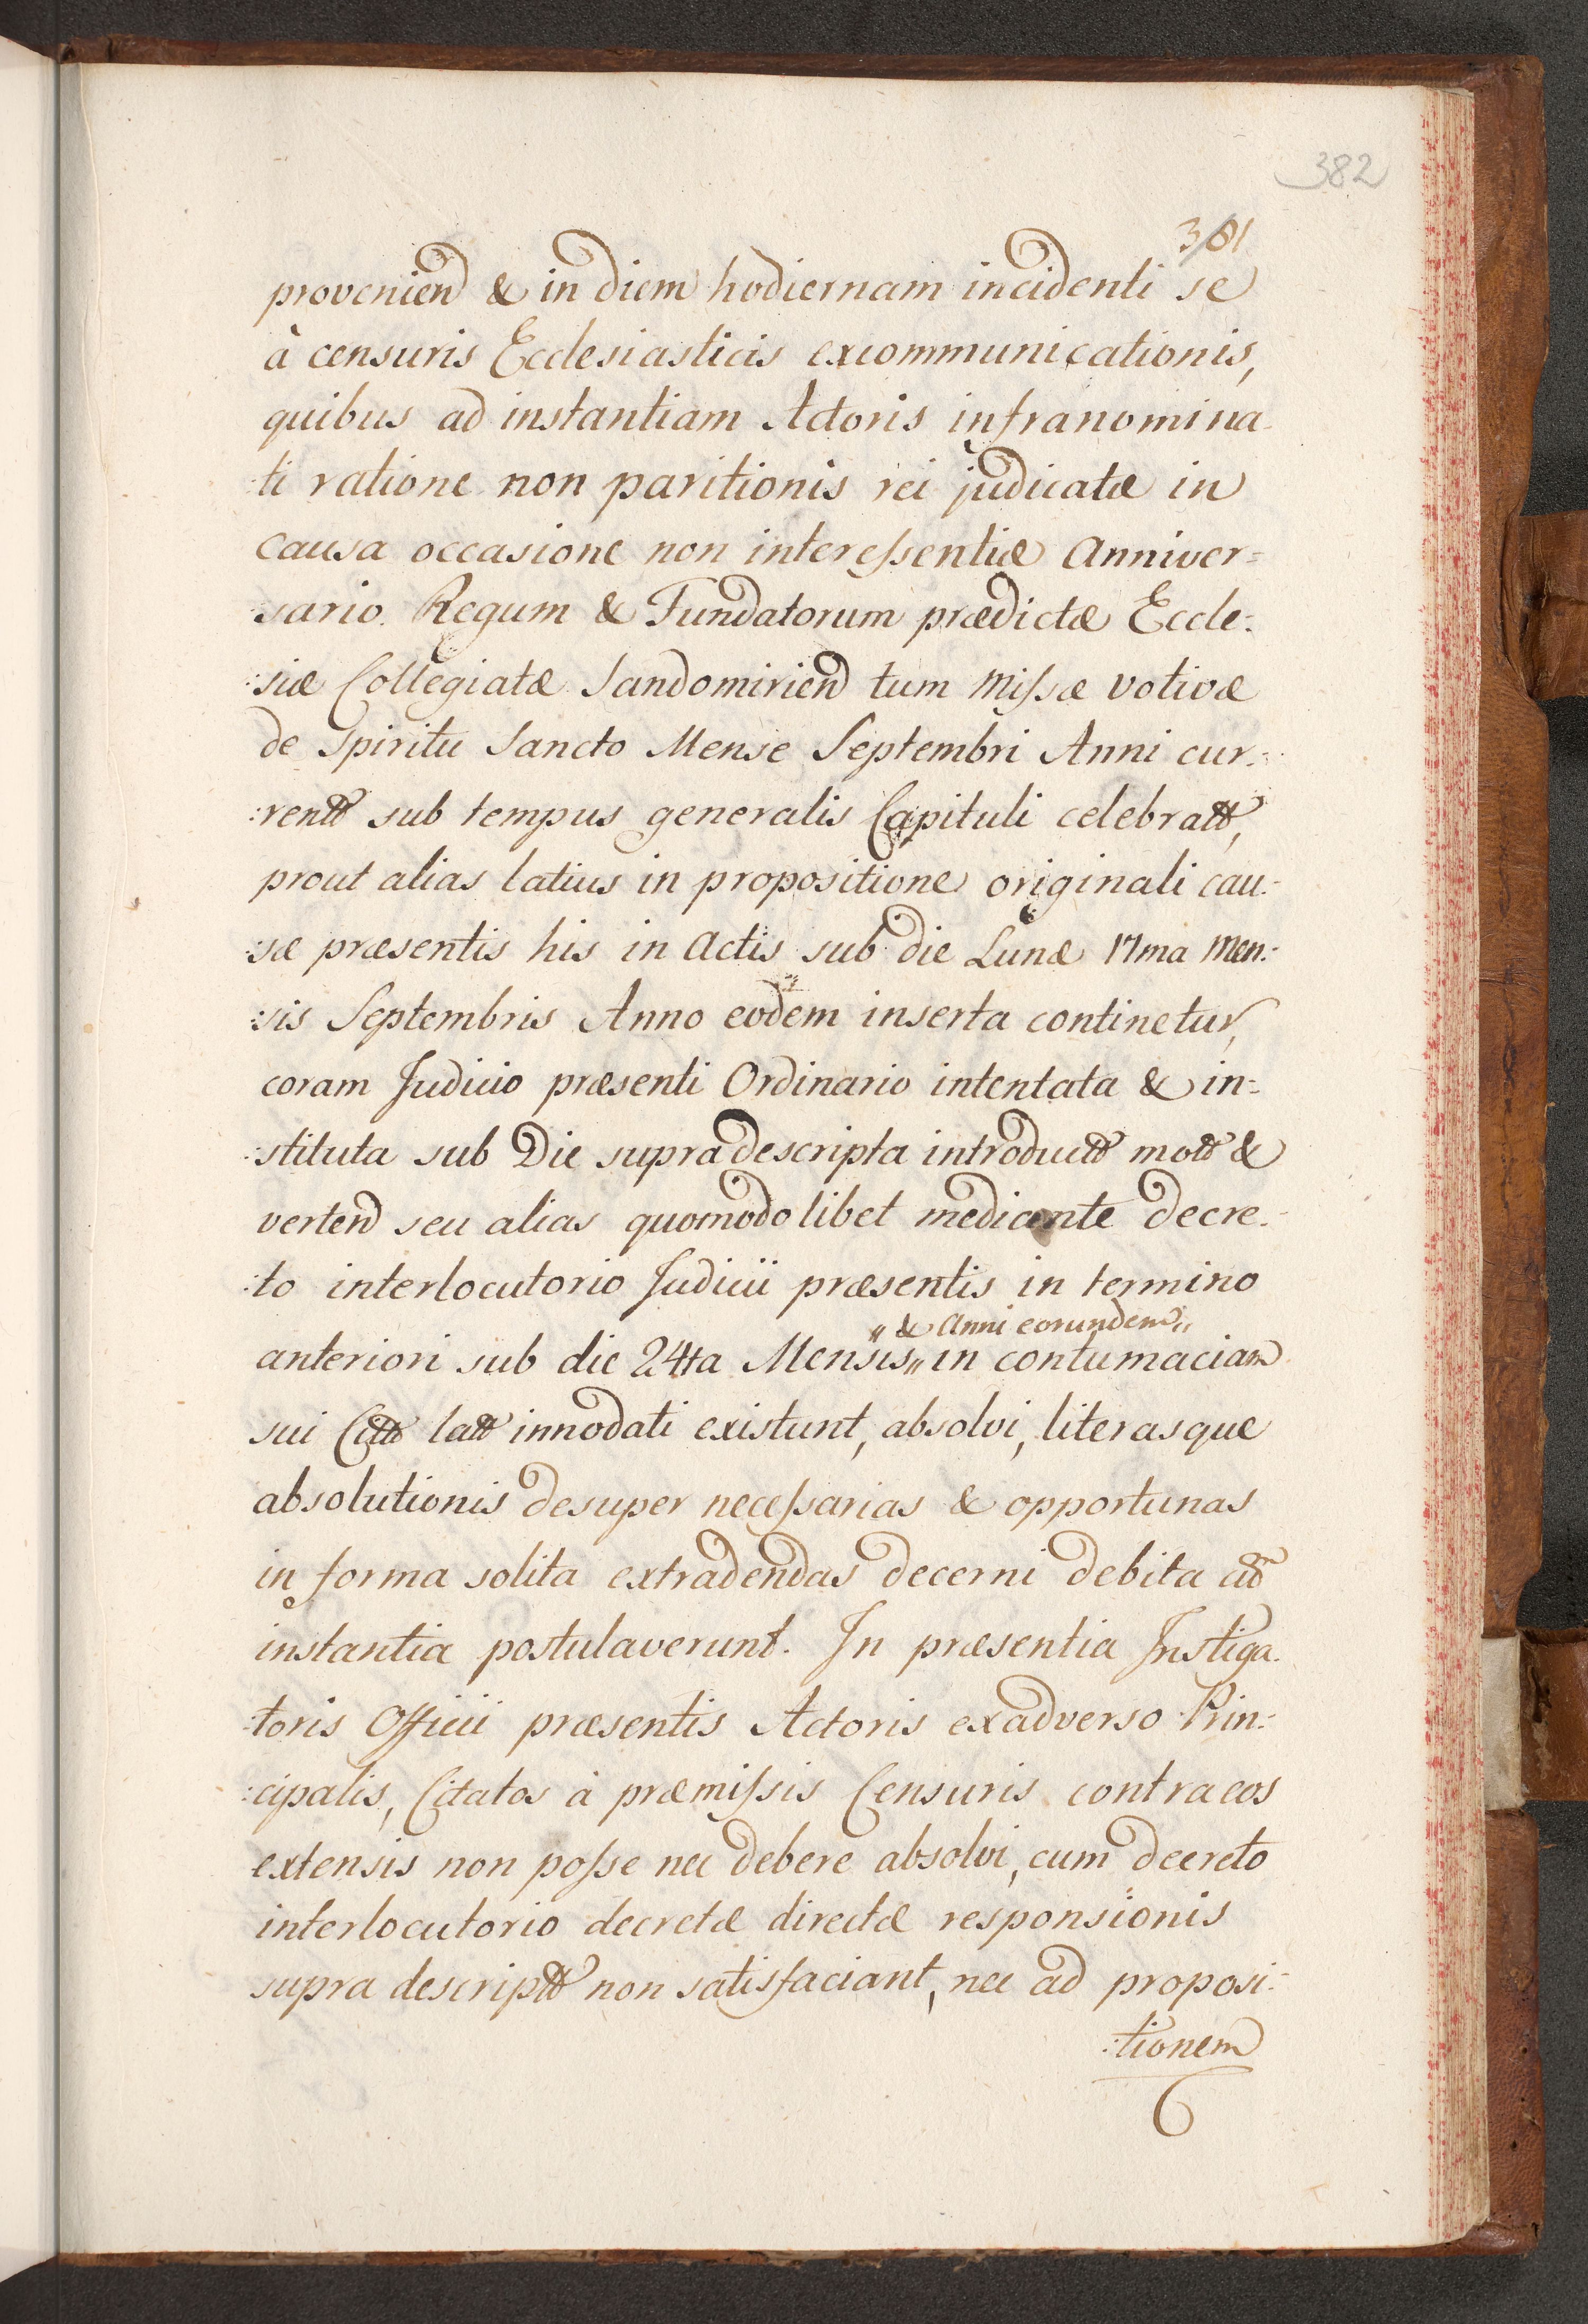 382
381
proveniend & in diem hodiernam incidenti se
à censuris Ecclesiasticis excommunicationis,
quibus ad instantiam Actoris infranomina-
:ti ratione non paritionis rei judicatæ in
causa occasione non interessentiæ Anniver=
:sario Regum & Fundatorum prædictæ Eccle:
:siæ Collegiatæ Sandomiriend tum Missæ votivæ
de Spiritu Sancto Mense Septembri Anni cur:
:rentt sub tempus generalis Capituli celebratt,
prout alias latius in propositione originali cau:
:sæ præsentis his in Actis sub die Lunæ 17ma Men:
:sis Septembris Anno eodem inserta continetur,
coram Judicio præsenti Ordinario intentata & in:
:stituta sub Die supra descripta introductt mott &
vertend seu alias quomodo libet mediante decre:
:to interlocutorio Judicii præsentis in termino
" & Anni eorundem "
anteriori sub die 24ta Mensis " in contumaciam
sui Citt latt innodati existunt, absolvi, literasque
absolutionis desuper necessarias & opportunas
in forma solita extradendas decerni debita cum
instantia postulaverunt. In præsentia Instiga:
:toris Officii præsentis Actoris exadverso Prin:
:cipalis, Citatos à præmissis Censuris contra eos
extensis non posse nec debere absolvi, cum decreto
interlocutorio decretæ directæ responsionis
supra descriptt non satisfaciant, nec ad proposi:
:tionem